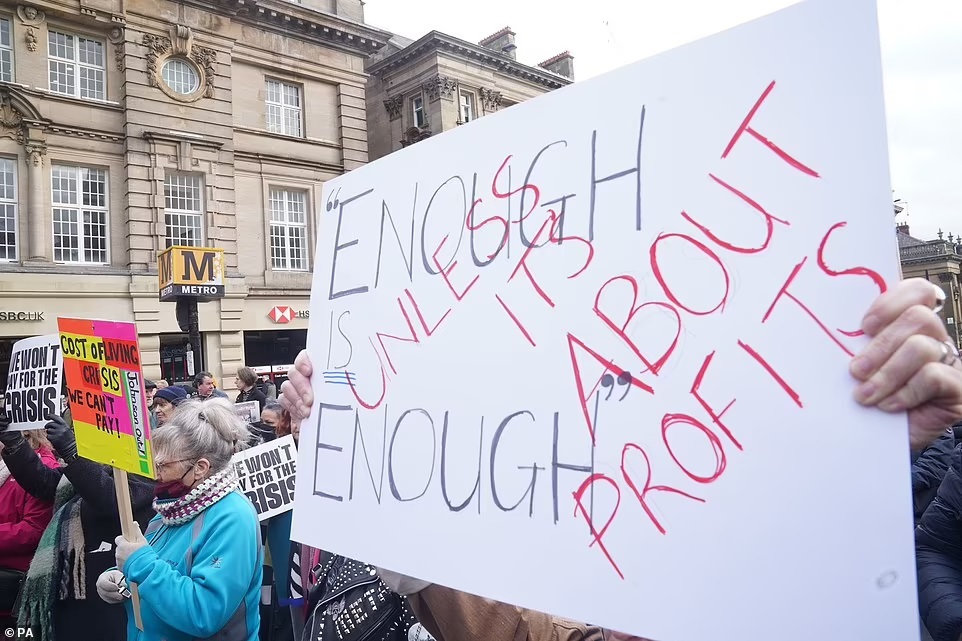 "ENOUGH
IS
ENOUGH"
UNLESS
IT'S
ABOUT
PROFITS
M
METRO
HSBC UK
HSBC
WE WON'T
PAY FOR THE
CRISIS
COST OF LIVING
CRISIS
WE CAN'T
PAY!
Johnson Out!
WE WON'T
PAY FOR THE
CRISIS
© PA